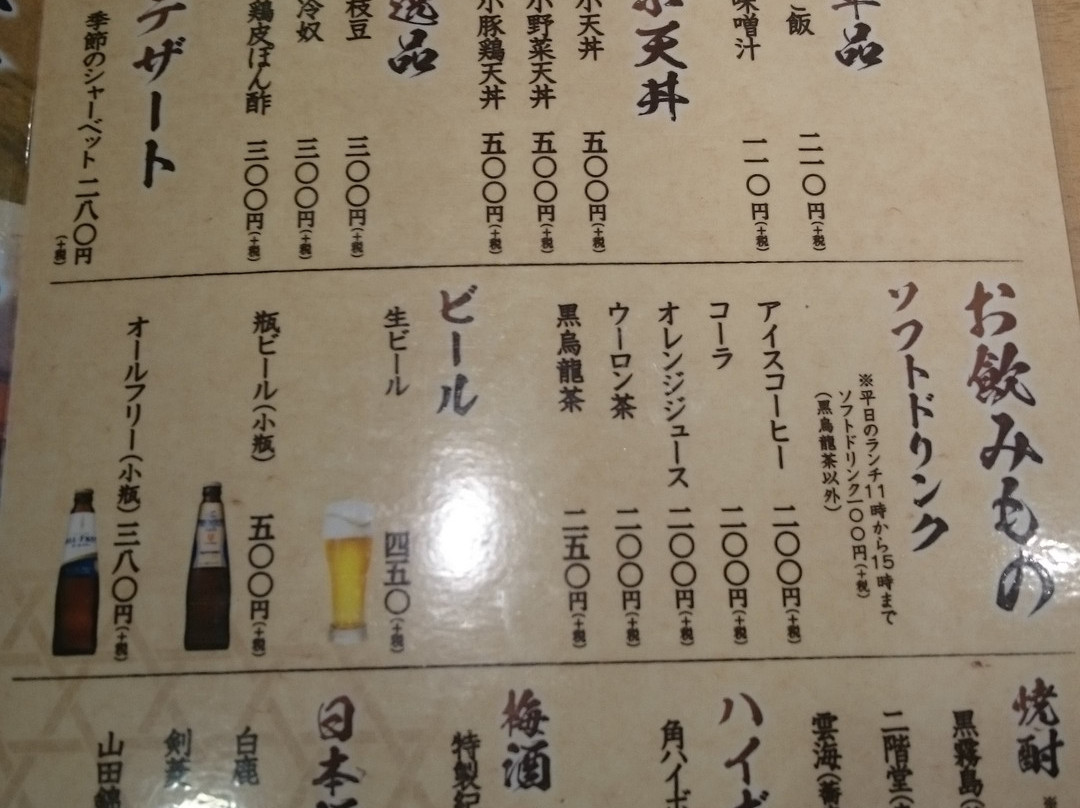 単品
ご飯 二一〇円(+税)
味噌汁 一一〇円(+税)
小天丼
小天丼 五〇〇円(+税)
小野菜天丼 五〇〇円(+税)
小豚鶏天丼 五〇〇円(+税)
逸品
枝豆 三〇〇円(+税)
冷奴 三〇〇円(+税)
鶏皮ぽん酢 三〇〇円(+税)
デザート
季節のシャーベット 二八〇円
(+税)
お飲みもの
ソフトドリンク
※平日のランチ11時から15時まで
ソフトドリンク一〇〇円(+税)
(黒烏龍茶以外)
アイスコーヒー 二〇〇円(+税)
コーラ 二〇〇円(+税)
オレンジジュース 二〇〇円(+税)
ウーロン茶 二〇〇円(+税)
黒烏龍茶 二五〇円(+税)
ビール
生ビール 四五〇(+税)
瓶ビール(小瓶) 五〇〇円(+税)
オールフリー(小瓶) 三八〇円(+税)
焼酎
※
黒霧島(
二階堂(
雲海(蕎
ハイボ
角ハイボ
梅酒
特製紀
日本
白鹿
剣菱
山田錦